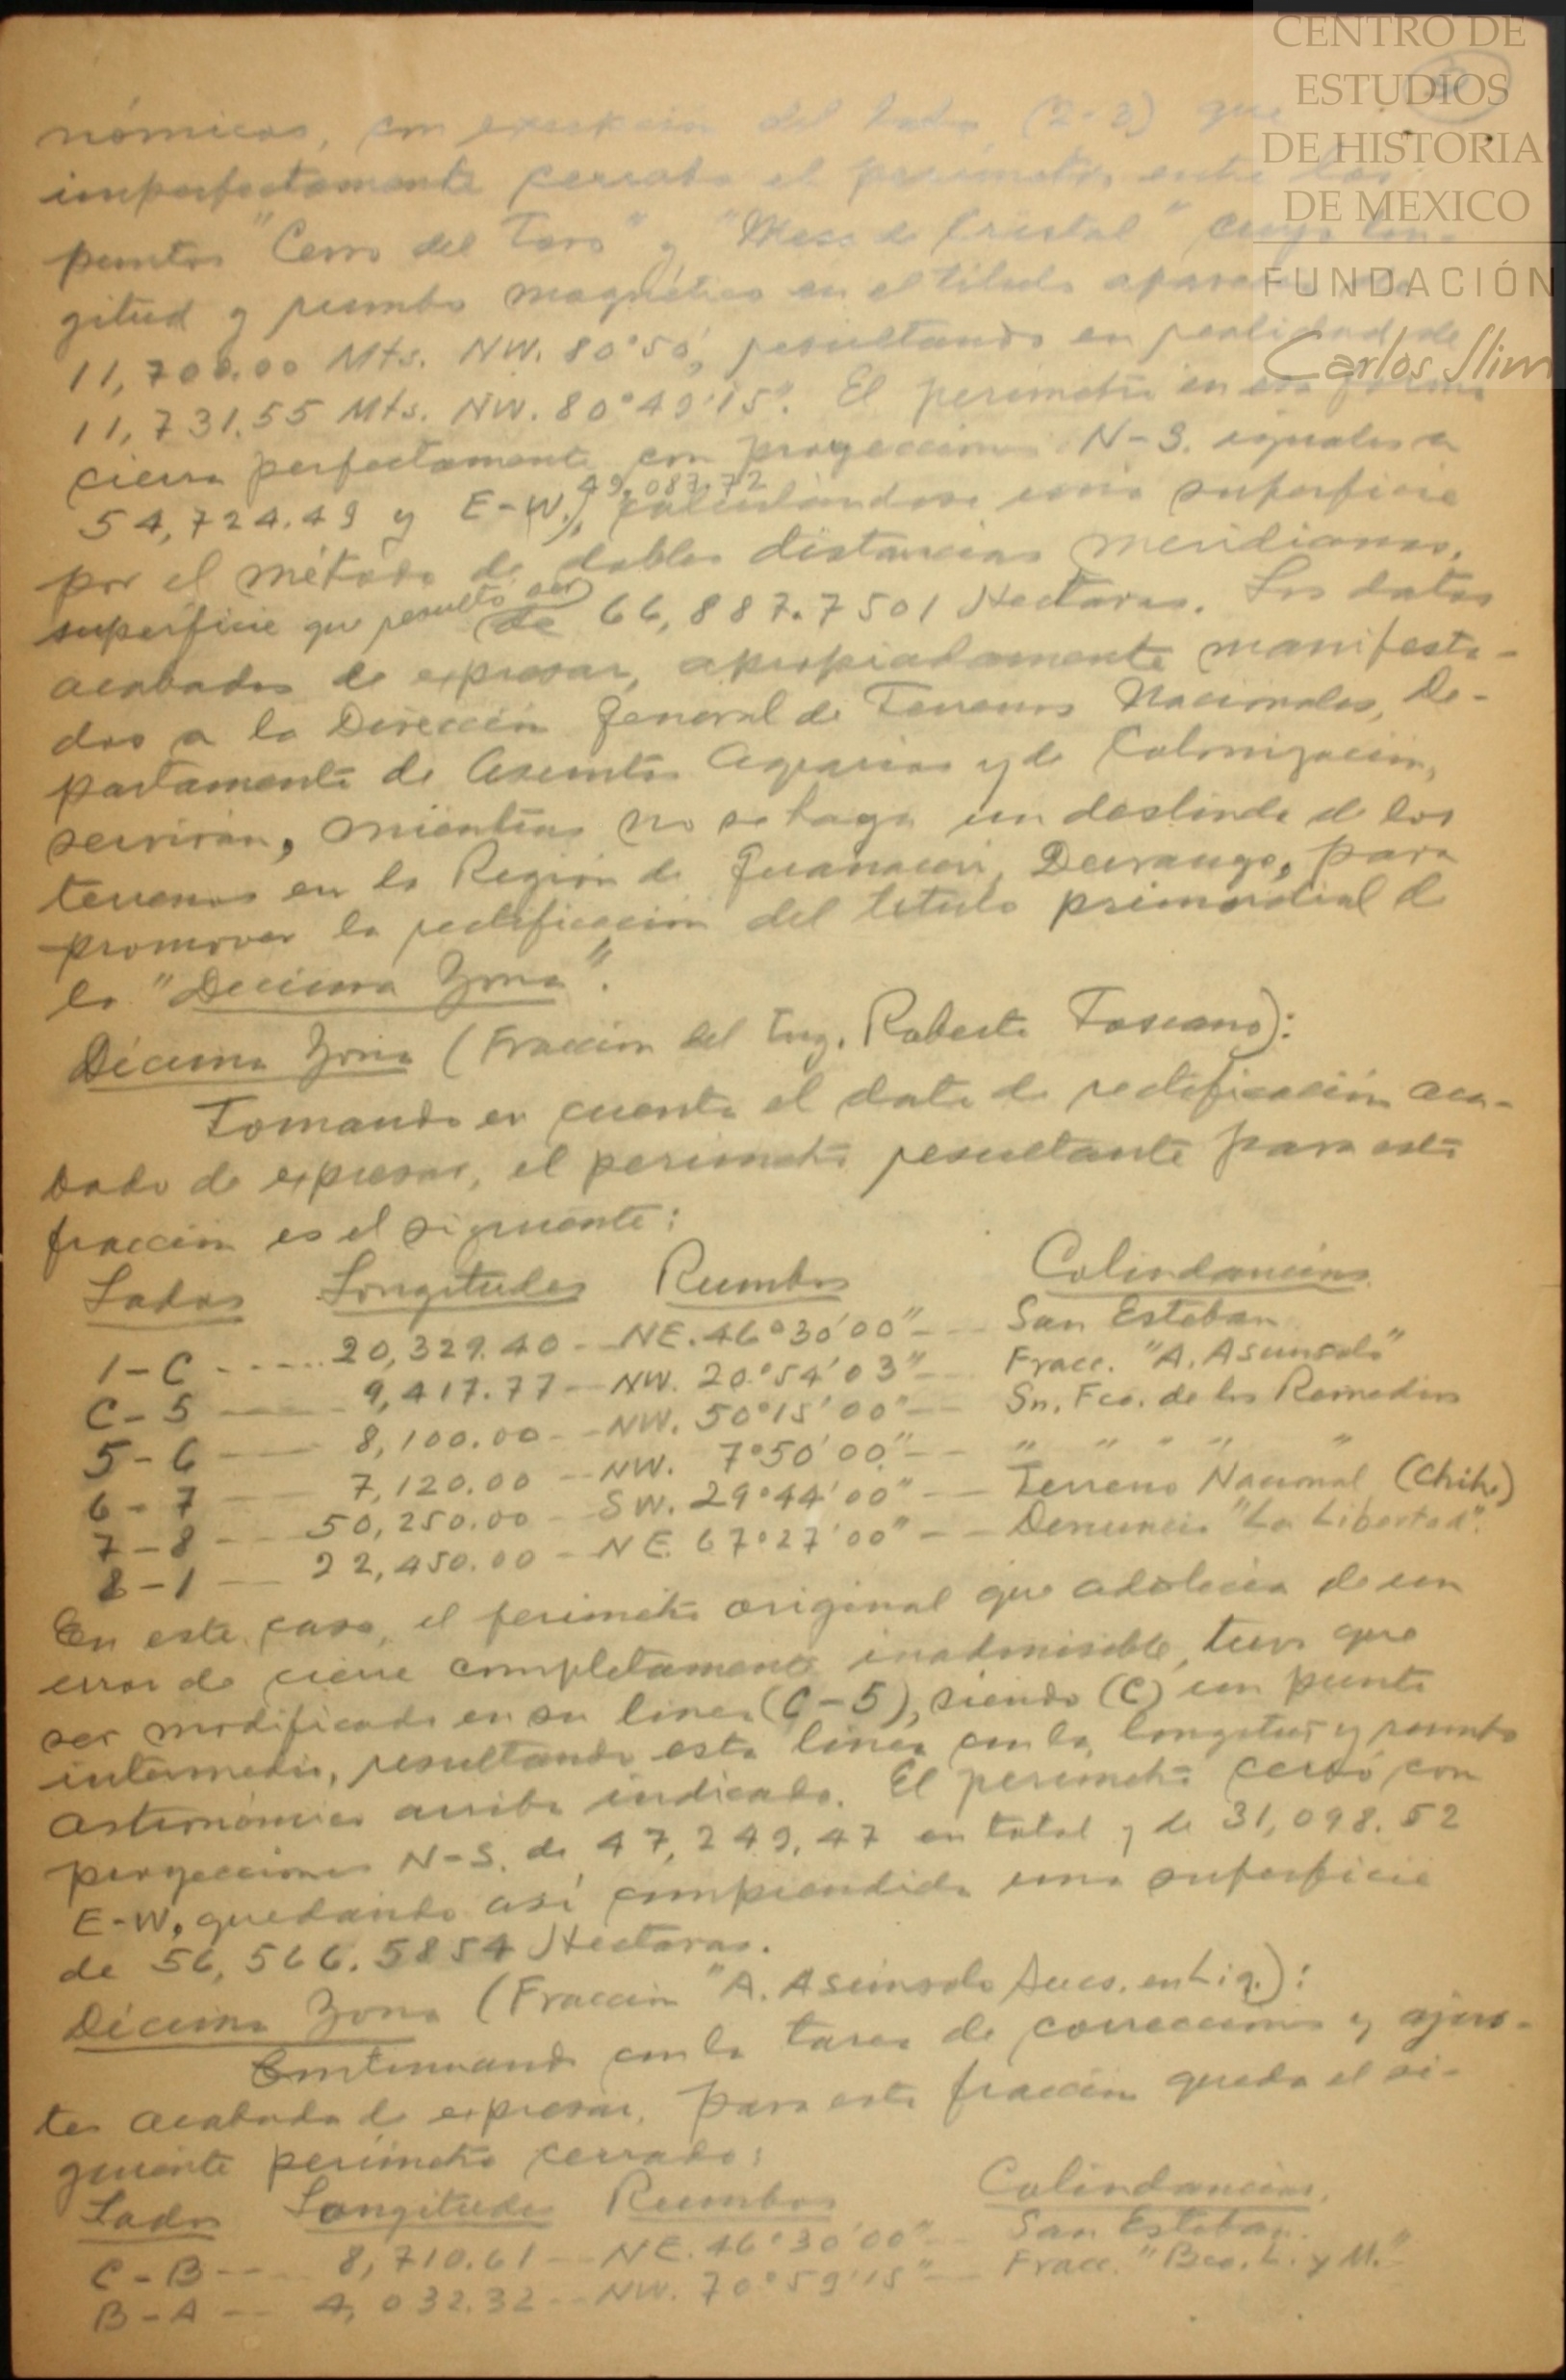 CENTRO DE
ESTUDIOS
DE HISTORIA
DE MEXICO
FUNDACIÓN
Carlos Slim
nómicos, con del lado (2-3) que
imperfectamente cerraba el perímetro, entre los
puntos "Cerro del Toro" y "Mesa de Cristal" cuya lon-
gitud y rumbo magnético en el título
11,700.00 Mts. NW. 80°50', resultando en realidad de
11,731.55 Mts. NW. 80°49'15". El perímetro en esa forma
cierra perfectamente con proyecciones N-S. iguales a
54,724.49 y E-W. 49,087.72, calculándose una superficie
por el método de dobles distancias meridianas,
superficie que resultó ser de 66,887.7501 Hectaras. Los datos
acabados de expresar, apropiadamente manifesta-
dos a la Dirección General de Terrenos Nacionales, De-
partamento de Asuntos Agrarios y de Colonización,
servirán, mientras no se haga un deslinde de los
terrenos en la Región de Guanaceví, Durango, para
promover la rectificación del título primordial de
la "Decima Zona".
Décima Zona (Fracción del Ing. Roberto Toscano):
Tomando en cuenta el dato de rectificación aca-
bado de expresar, el perímetro resultante para esta
fracción es el siguiente:
Lados Longitudes Rumbos Colindancias
1-C ---- 20,329.40 -- NE. 46°30'00" -- San Esteban
C-5 --- 9,417.77 -- NW. 20°54'03" -- Fracc. "A. Asunsolo"
5-6 --- 8,100.00 -- NW. 50°15'00" -- Sn. Fco. de los Remedios
6-7 --- 7,120.00 -- NW. 7°50'00" -- " " " " "
7-8 --- 50,250.00 - SW. 29°44'00" -- Terreno Nacional (Chih.)
8-1 --- 22,450.00 - NE. 67°27'00" -- Denuncio "La Libertad".
En este caso, el perímetro original que adolecía de un
error de cierre completamente inadmisible, tuvo que
ser modificado en su línea (C-5), siendo (C) un punto
intermedio, resultando esta línea con la longitud y rumbo
astronómico arriba indicado. El perímetro cerró con
proyecciones N-S. de 47,249.47 en total y de 31,098.52
E-W, quedando así comprendida una superficie
de 56,566.5854 Hectaras.
Décima Zona (Fracción "A. Asúnsolo Sucs. en Liq.):
Continuando con la tarea de correcciones y ajus-
tes acabada de expresar, para esta fracción queda el si-
guiente perímetro cerrado:
Lados Longitudes Rumbos Colindancias.
C-B --- 8,710.61 -- NE. 46°30'00" -- San Esteban.
B-A -- 4,032.32 -- NW. 70°59'15" -- Fracc. "Bco. L. y M."